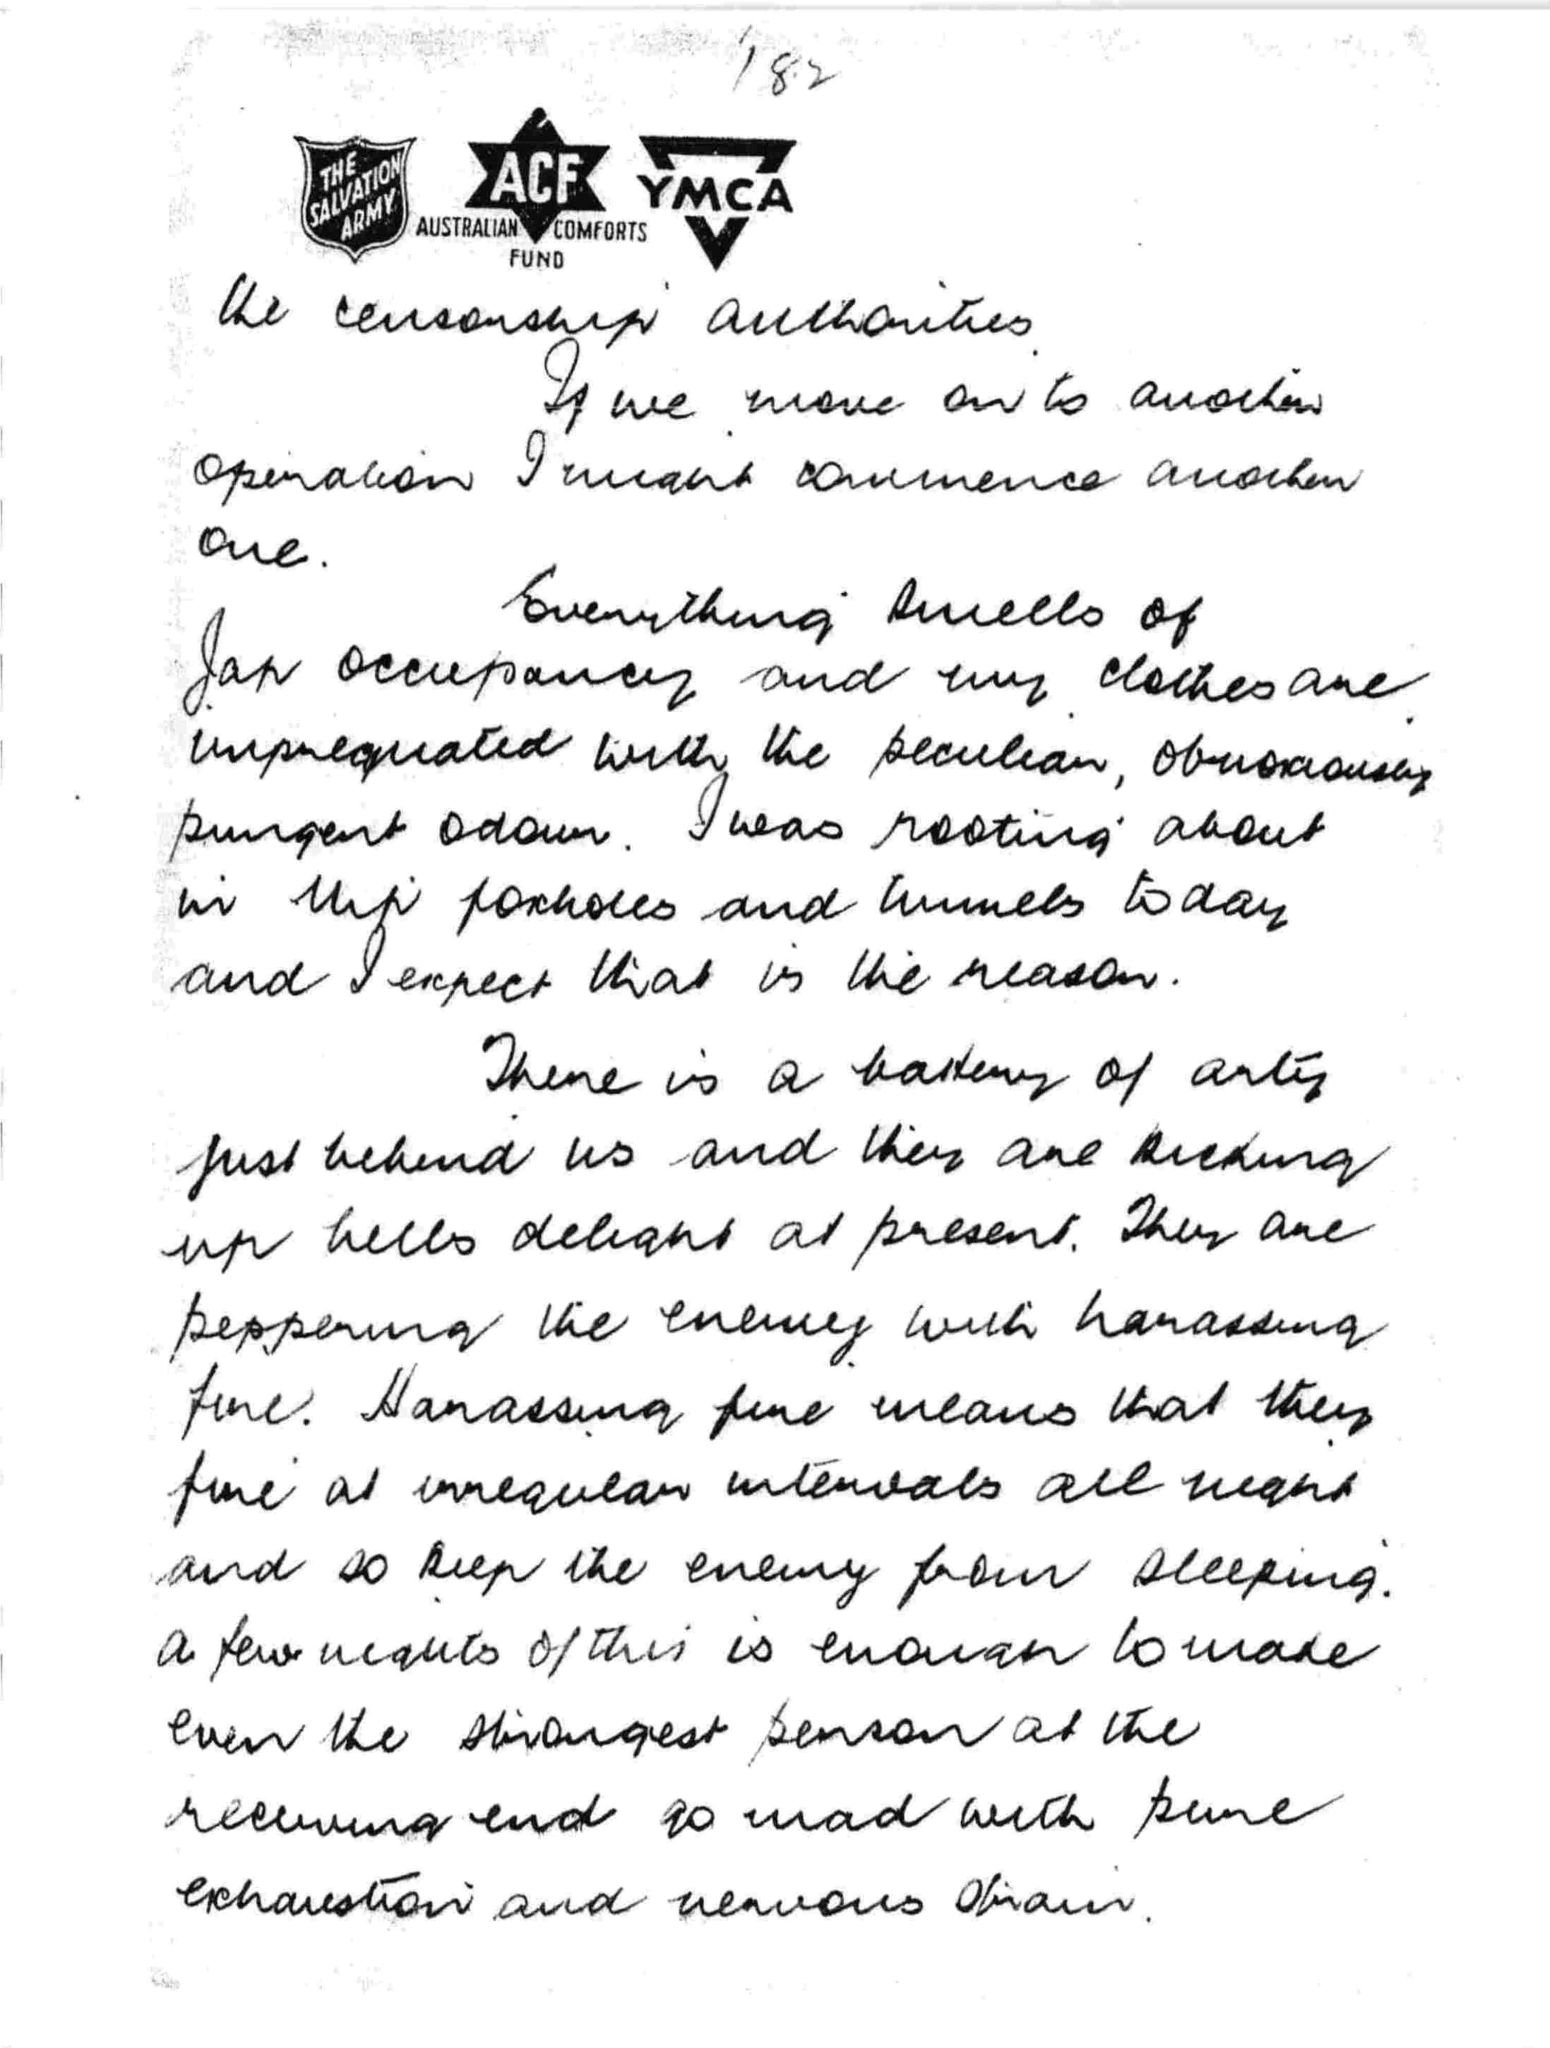 182
THE
SALVATION
ARMY
ACF
AUSTRALIAN COMFORTS
FUND
YMCA
the censorship authorities.
If we move on to another
operation I might commence another
one.
Everything smells of
Jap occupancy and my clothes are
impregnated with the peculiar, obnoxiously
pungent odour. I was rooting about
in Nip foxholes and tunnels today
and I expect that is the reason.
There is a battery of arty
just behind us and they are kicking
up hells delight at present. They are
peppering the enemy with harassing
fire. Harassing fire means that they
fire at irregular intervals all night
and so keep the enemy from sleeping.
A few nights of this is enough to make
even the strongest person at the
receiving end go mad with pure
exhaustion and nervous strain.